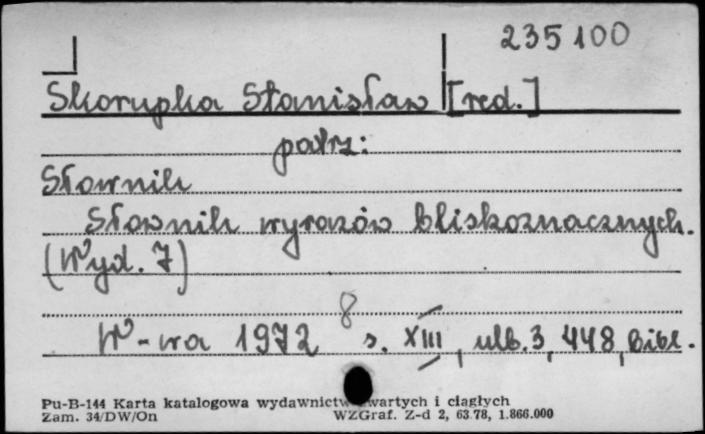 235100
Skorupka Stanisław [red.]
patrz:
Słownik
Słownik wyrazów bliskoznacznych.
(Wyd. 7)
8
W-wa 1972 s. XIII, ulb. 3, 448, Bibl.
Pu-B-144 Karta katalogowa wydawnictw zwartych i ciągłych
Zam. 34/DW/On WZGraf. Z-d 2, 63.78, 1.866.000